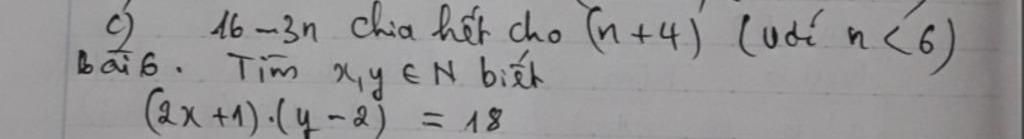 c) 16 - 3n chia hết cho (n + 4) (với n < 6)
Bài 6. Tìm x, y ∈ N biết
(2x + 1).(y - 2) = 18